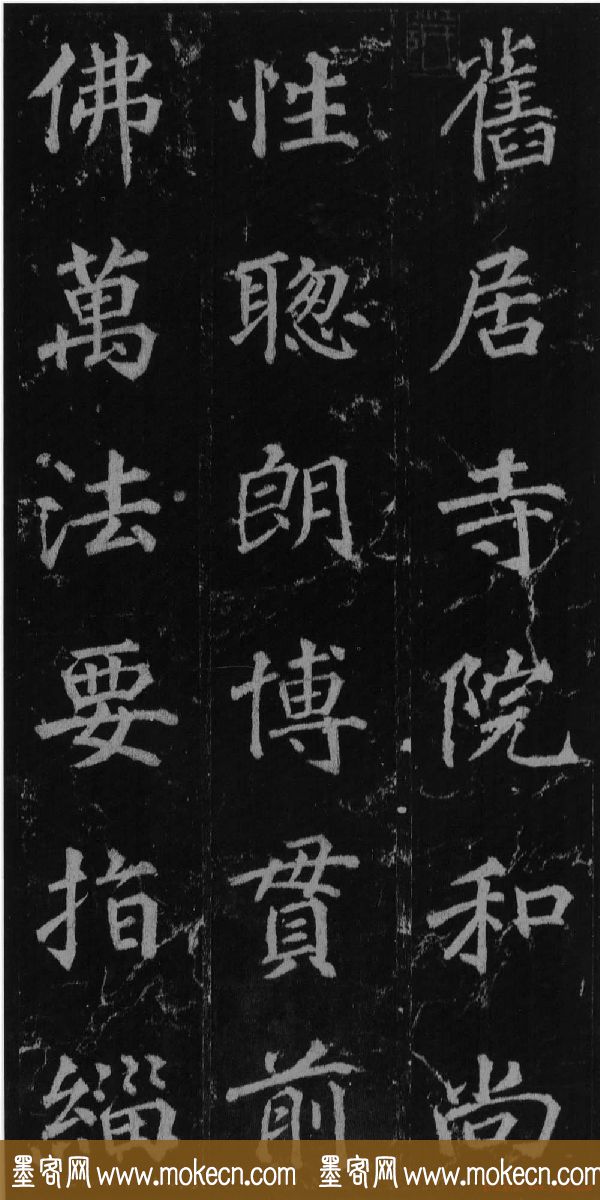 舊居寺院和尚
性聦朗博貫前
佛萬法要指緇
墨客网 www.mokecn.com 墨客网 www.mokecn.com